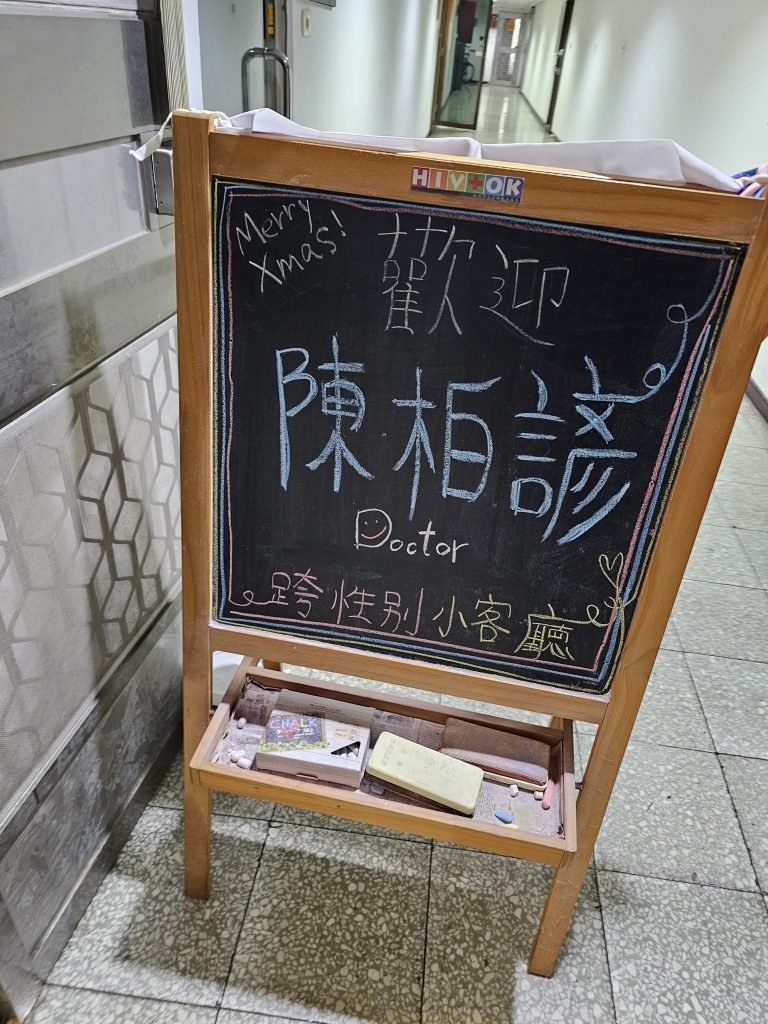 HIYOK
Merry
Xmas!
歡迎
陳柏諺
Doctor
跨性別小客廳
CHALK